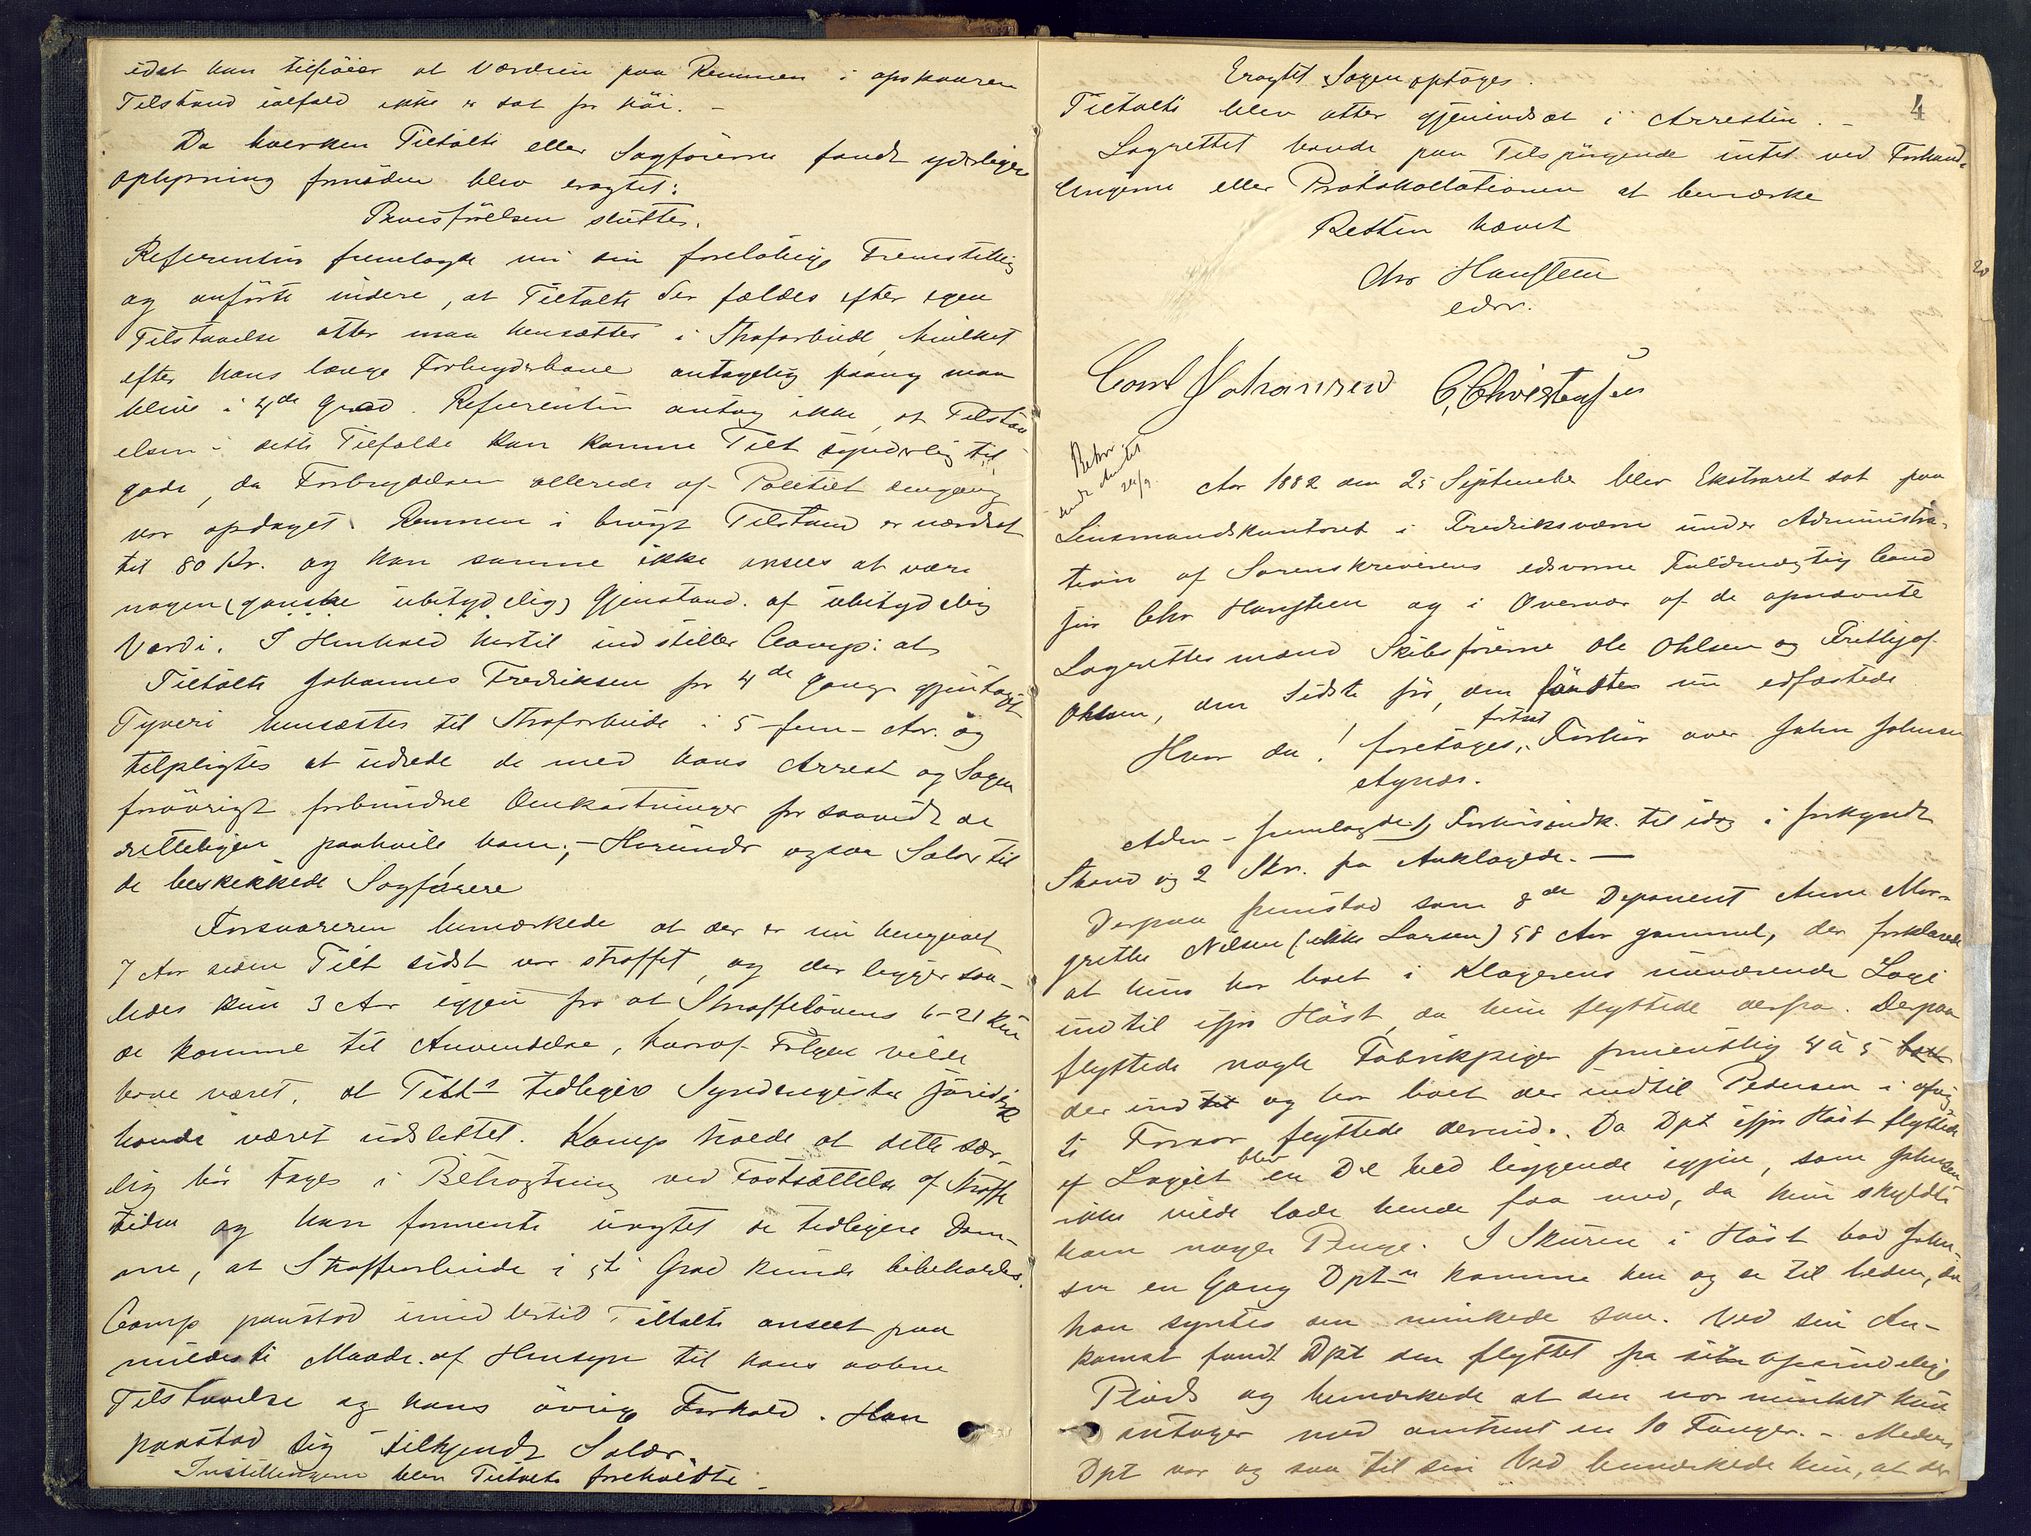 idet han tilføier at Værdien paa Remmen i opskaaren
Tilstand ialfald ikke er sat for høi. –
Da hverken Tiltalte eller Sagførerne fandt yderligere
oplysning fornøden blev eragtet:
Bevisførelsen sluttes.
Referenten fremlagde nu sin foreløbige Fremstilling
og anførte videre, at Tiltalte der fældes efter egen
Tilstaaelse atter maa hensættes i Strafarbeide, hvilket
efter hans længe Forbryderbane antagelig paany maa
blive i 4de Grad. Referenten antog ikke, at Tilstaa-
elsen i dette Tilfælde kan komme Tilt synderlig til
gode, da Forbrydelsen allerede af Politiet dengang
var opdaget. Remmen i brugt Tilstand er værdsat
til 80 Kr. og kan samme ikke ansees at være
nogen (ganske ubetydelig) Gjenstand af ubetydelig
Værdi. I Henhold hertil indstiller Comp: at
Tiltalte Johannes Fredriksen for 4de Gang gjentaget
Tyveri hensættes til Strafarbeide i 5 – fem – Aar og
tilpligtes at udrede de med hans Arrest og Sagen
forøvrigt forbundne Omkostninger for saavidt de
retteligen paahvile ham; – Herunder ogsaa Salær til
de beskikkede Sagførere
Forsvareren bemærkede at der er nu hengaaet
7 Aar siden Tilt sidst var straffet, og der ligger saa-
ledes kun 3 Aar igjen for at Straffelovens 6–21 kun
de komme til Anvendelse, hvoraf Følgen vilde
have været, at Tilt's tidligere Synderegister juridisk
havde været udslettet. Komp troede at dette sær-
lig bør tages i Betragtning ved Fastsættelse af Straffe
tiden og han formente uagtet de tidligere Dom-
me, at Straffearbeide i 5te Grad kunde bibeholdes.
Comp paastod imidlertid Tiltalte anseet paa
mildeste Maade af Hensyn til hans aabne
Tilstaaelse og hans øvrige Forhold. Han
paastod sig tilkjendt Salær.
Instillingerne blev Tiltalte foreholdte.
4
Eragtet Sagen optages.
Tiltalte blev atter gjenindsat i Arresten. –
Lagrettet havde paa Tilspørgende intet ved Forhand-
lingerne eller Protokollationen at bemærke
Retten hævet
Chr Hansteen
edsv.
Carl Johansen C, Christensen
Aar 1882 den 25 September blev Ekstraret sat paa
Lensmandskontoret i Fredriksværn under Administra-
tion af Sorenskriverens edsvorne Fuldmægtig Cand
jur Chr Hansteen og i Overvær af de opnævnte
Lagrettesmænd Skibsførerne Ole Ohlsen og Frithjof
Ohlsen, den Sidste før, den første nu edfæstede
Hvor da! foretages, fortsat Forhør over John Johnsen
Agnæs.
Adm – fremlagde 1, Forhørsindk. til idag i forkyndt
Stand og 2 Skr. fra Anklagede. –
Derpaa fremstod som 8de Deponent Anne Mar-
grethe Nilsen (ikke Larsen) 58 Aar gammel, der forklarede
at hun har boet i Klagerens nuværende Logi
indtil ifjor Høst, da hun flyttede derfra. Derpaa
flyttede nogle Fabrikpiger formentlig 4 à 5
der ind og har boet der indtil Pedersen i afvig-
te Foraar flyttede derind. Da Dpt ifjor Høst flyttede
af Logiet blev en Del Ved liggende igjen, som Johnsen
ikke vilde lade hende faa med, da hun skyldte
ham nogle Penge. I Skuren i Høst bad John-
sen en Gang Dpt-n komme hen og se til Veden, da
han syntes den minkede saa. Ved sin An-
komst fandt Dpt den flyttet fra sin oprindelige
Plads og bemærkede at den var minket hun
antager med omtrent en 10 Fanger. – Medens
Dpt var og saa til sin Ved bemærkede hun, at der